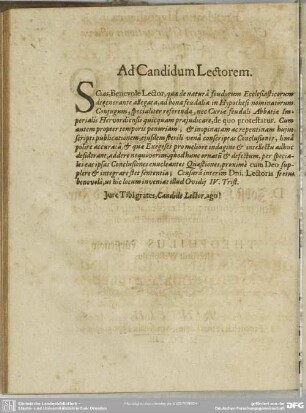 Ad Candidum Lectorem.
SCias, Benevole Lector, quæ de naturâ feudorum Ecclesiasticorum
degenerante allegata, ad bona feudalia in Hypothesi nominatorum
Conjugum, specialiter referenda, nec Curiæ feudali Abbatiæ Im-
perialis Hervordiensis quicquam præjudicare, de quo protestatur. Cum
autem propter temporis penuriam, & inopinatam ac repentinam hujus
scripti publicationem, ejusdem sterili venâ conscriptæ Conclusiones, limâ
polite accuratâ, & quæ Exegeses pro meliore indagine & intellectu adhuc
desiderant, addere nequiverim, quod hunc ornatû & defectum, per specia-
les ac ejusdem Conclusiones enucleantes Quæstiones, proximè cum Deo sup-
plere & integrare stet sententia; Censurâ interim Dni. Lectoris feram
benevoli, ut hic locum inveniat illud Ovidij IV. Trist.
Jure Tibi grates, Candide Lector, ago!